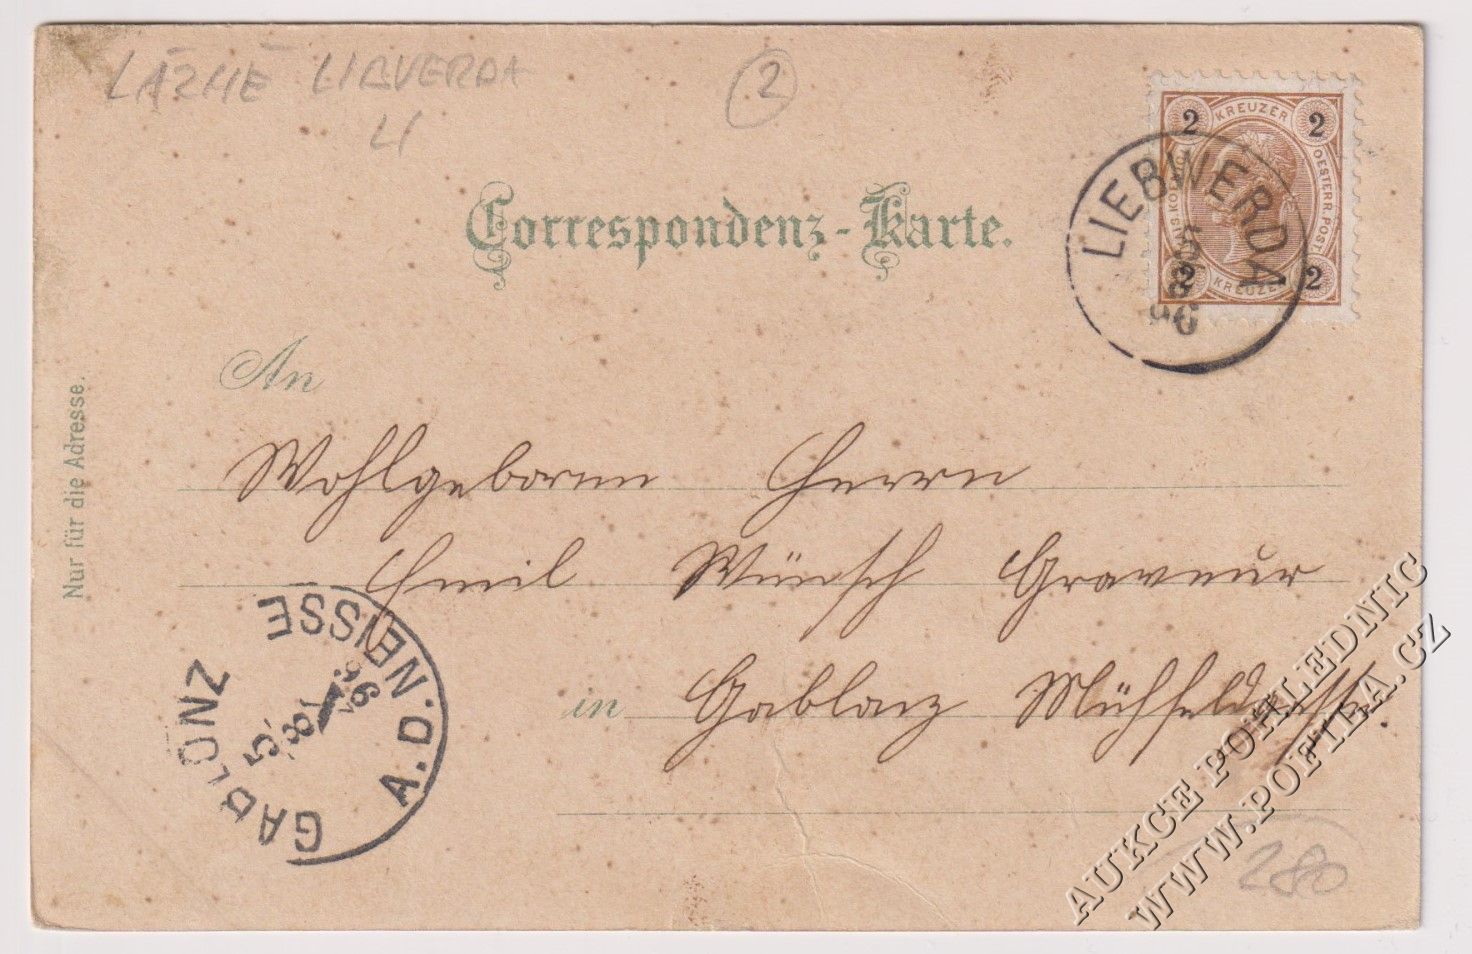 LÁZNĚ LIBVERDA
LI
2
2 KREUZER 2
OESTERR. POST
2 KREUZER 2
LIEBWERDA
96
Correspondenz-Karte.
An
Nur für die Adresse.
Wohlgeboren Herrn
Emil Wünsch Graveur
in Gablonz Mühlfeldgasse
GABLONZ A.D. NEISSE
5 8 96
280
AUKCE POHLEDNIC
WWW.POFILA.CZ